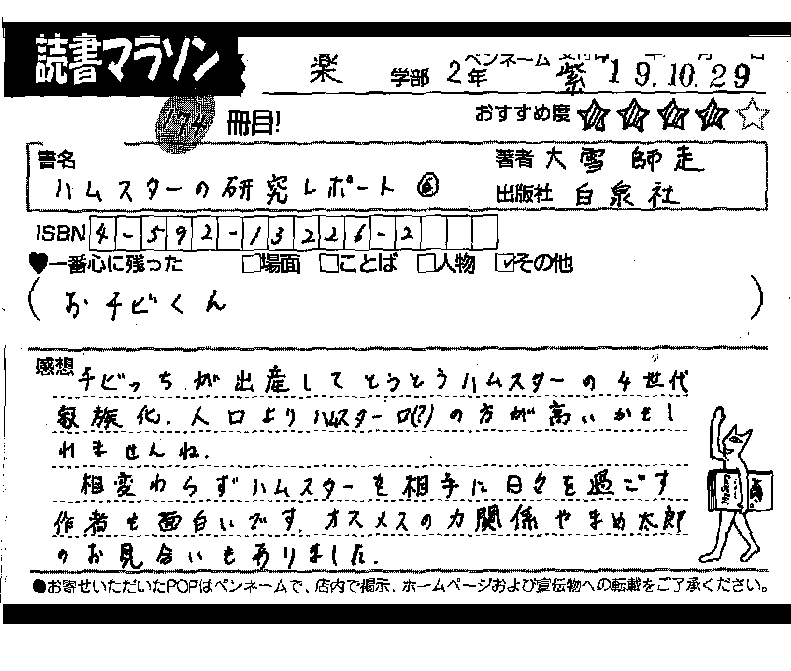 読書マラソン
楽 学部 2年 ペンネーム 紫 19.10.29
174 冊目! おすすめ度 ★★★★☆
書名 ハムスターの研究レポート⑥ 著者 大雪師走
出版社 白泉社
ISBN 4-592-13226-2
♥一番心に残った □場面 □ことば □人物 ☑その他
(おチビくん)
感想 チビっちが出産してとうとうハムスターの4世代
家族化.人口よりハムスター口(?)の方が高いかもし
れませんね.
相変わらずハムスターを相手に日々を過ごす
作者も面白いです.オスメスの力関係やまめ太郎
のお見合いもありました.
●お寄せいただいたPOPはペンネームで、店内で掲示、ホームページおよび宣伝物への転載をご了承ください。